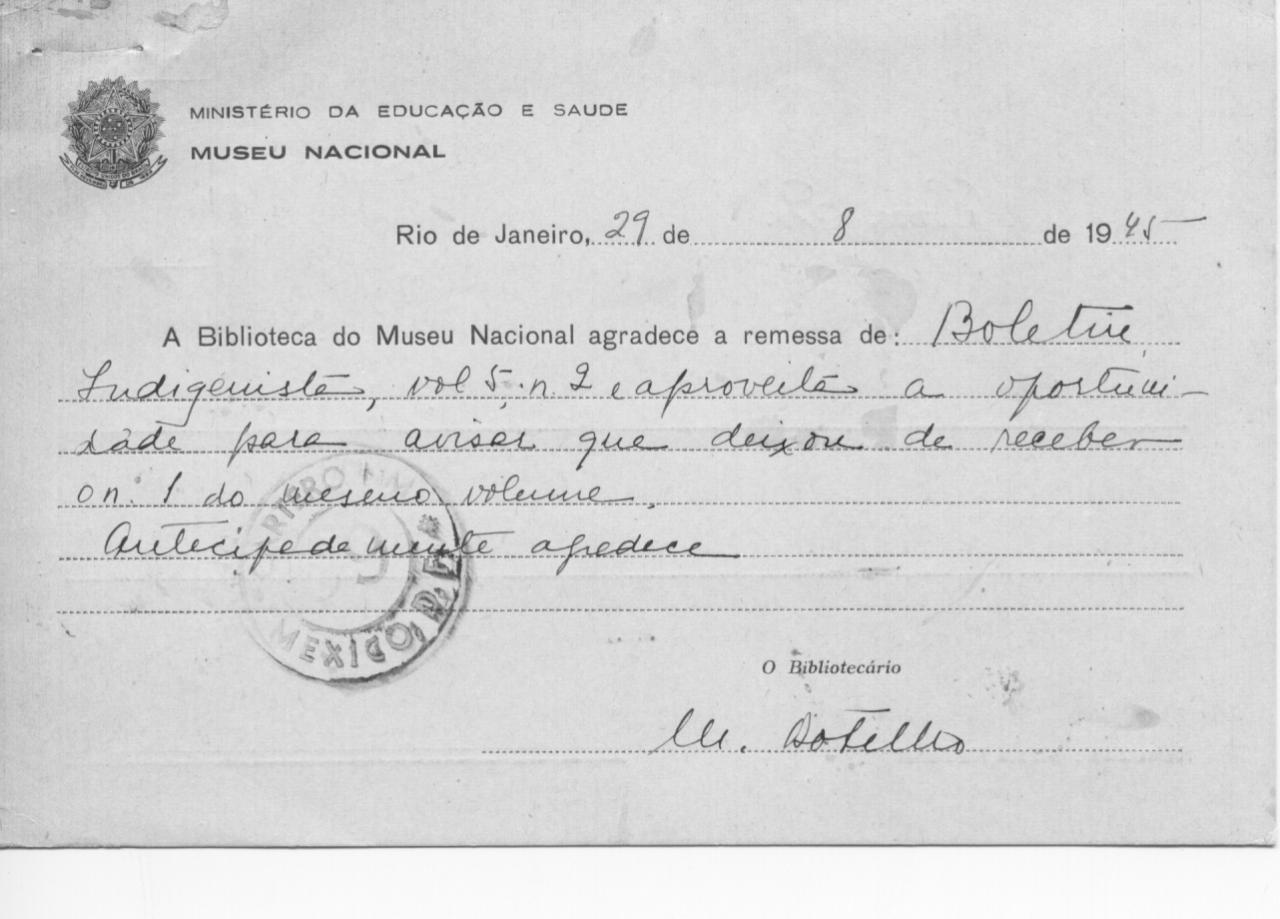 MINISTÉRIO DA EDUCAÇÃO E SAUDE
MUSEU NACIONAL
Rio de Janeiro, 29 de 8 de 1945
A Biblioteca do Museu Nacional agradece a remessa de: Boletin
Indigenista, vol 5, n. 2 e aproveita a oportuni-
dade para avisar que deixou de receber
o n. 1 do mesmo volume.
Antecipadamente agradece
MEXICO, D. F.
O Bibliotecário
M. Botelho